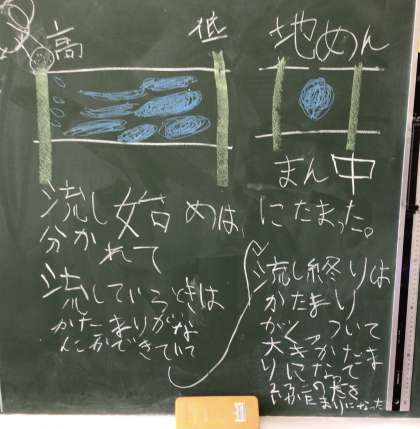 高 低
地めん
まん中
流し始めは、にたまった。
分かれて
流しているときは
かたまりがな
んこかできていて
流し終りは
かたまり
がくっついて
大きなかたま
りになって
まりになった